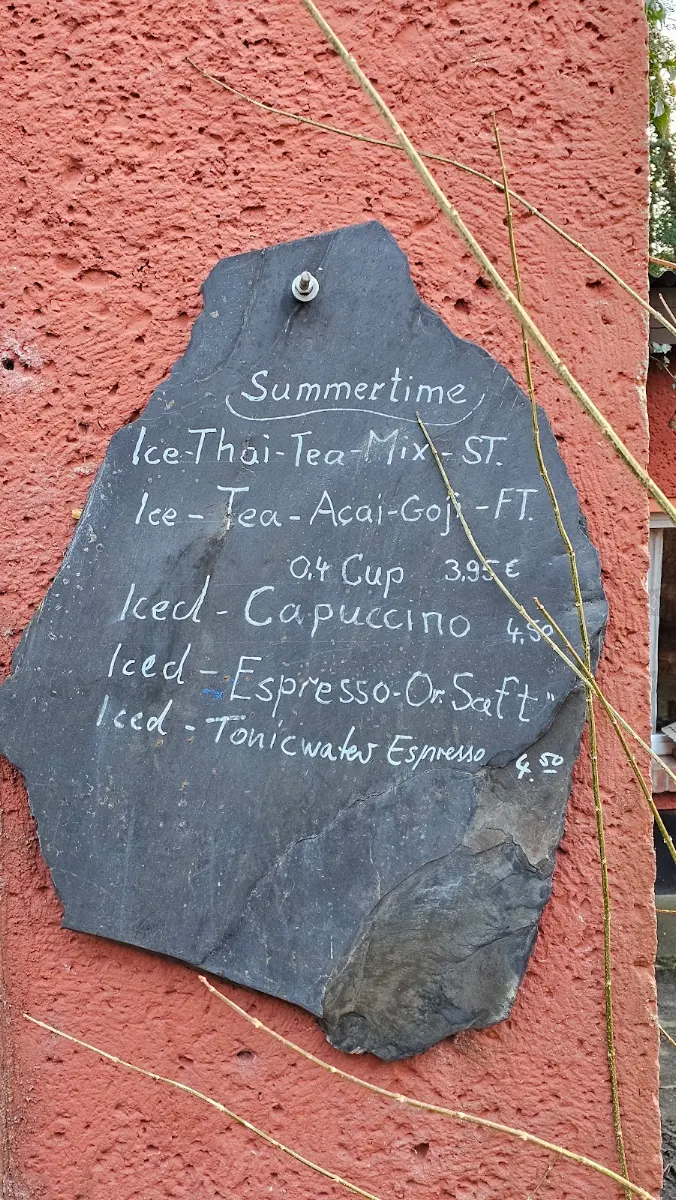 Summertime
Ice-Thai-Tea-Mix-ST.
Ice-Tea-Açai-Goji-FT.
0,4 Cup 3,95€
Iced-Capuccino 4,50
Iced-Espresso-Or.Saft"
Iced-Tonicwater Espresso 4.50